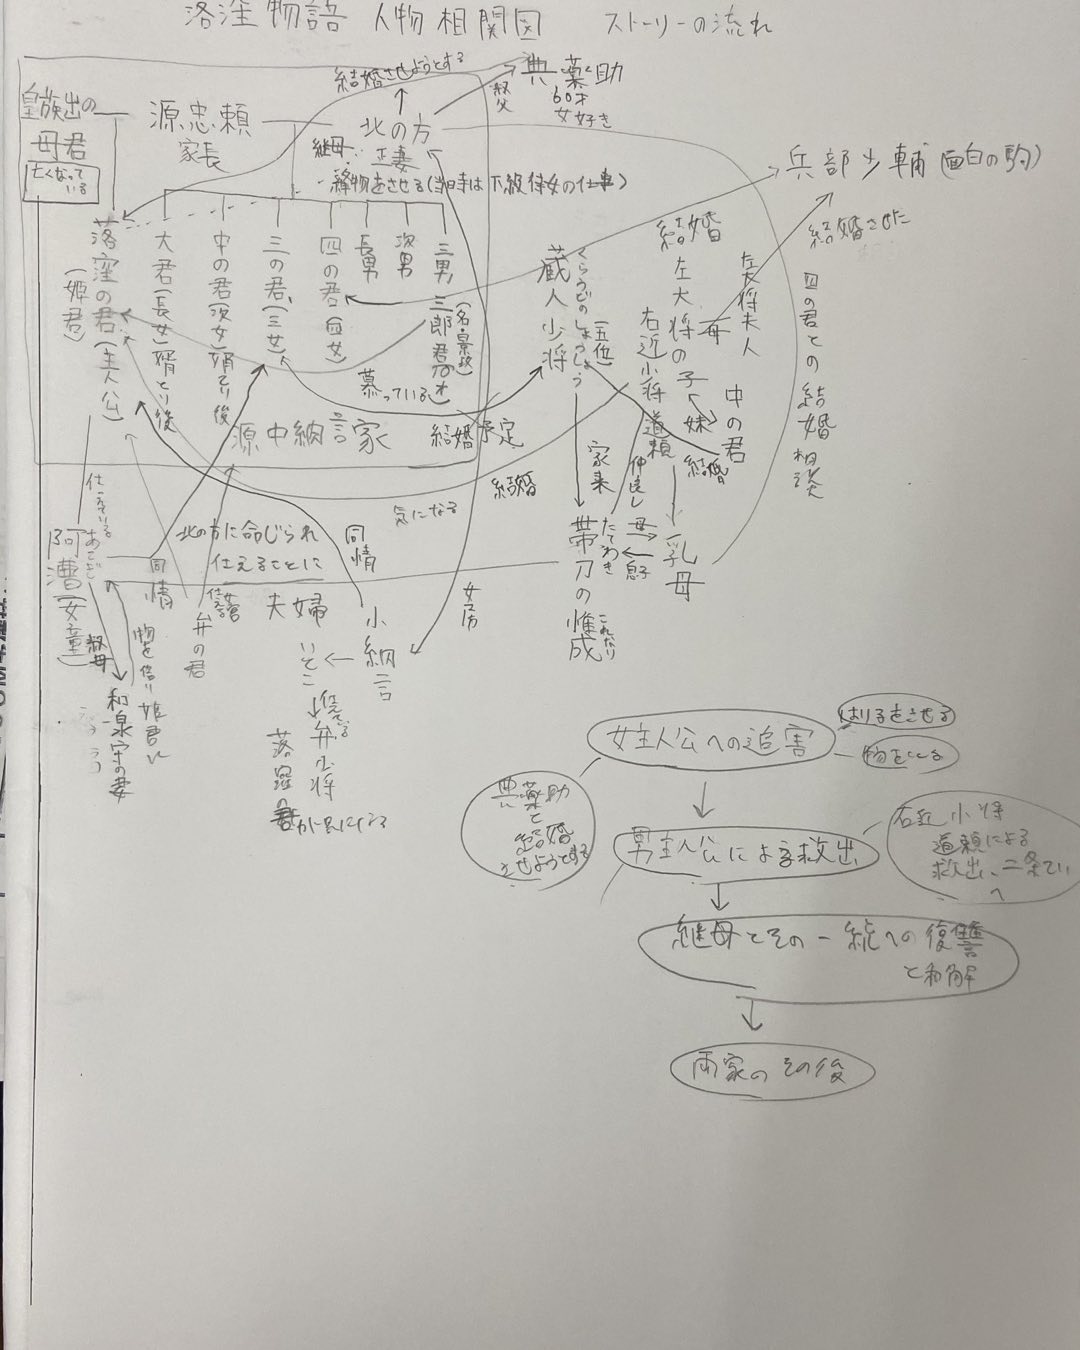 落窪物語 人物相関図 ストーリーの流れ
皇族出の
母君
亡くなって
いる
源忠頼
家長
結婚させようとする
北の方
正妻
継母
縫物をさせる(当時は下級侍女の仕事)
叔父
典薬助
60才
女好き
兵部少輔(面白の駒)
結婚させた
落窪の君(主人公)
(姫君)
大君(長女)婿とり後
中の君(次女)婿とり後
三の君(三女)
四の君(四女)
長男
次男
三男 三郎君
慕っている
源中納言家
結婚予定
蔵人少将
くろうどのしょうしょう
(五位)
結婚
左大将の子
右近少将 道頼
母
左大将夫人
妹
中の君
結婚
四の君との結婚相談
結婚
気になる
家来
仲良し
母
息子
乳母
帯刀の惟成
たてわき
これなり
仕えている
阿漕(女童)
あこぎ
同情
北の方に命じられ
仕えることに
夫婦
同情
女房
弁の君
小納言
いとこ
仕えている
弁少将
叔母
物を借り
和泉守の妻
女主人公への追害
はりをさせる
物をとる
典薬助
と
結婚
させようとする
男主人公による救出
右近少将
道頼による
救出、二条てい
へ
継母とその一統への復讐
と和解
両家のその後